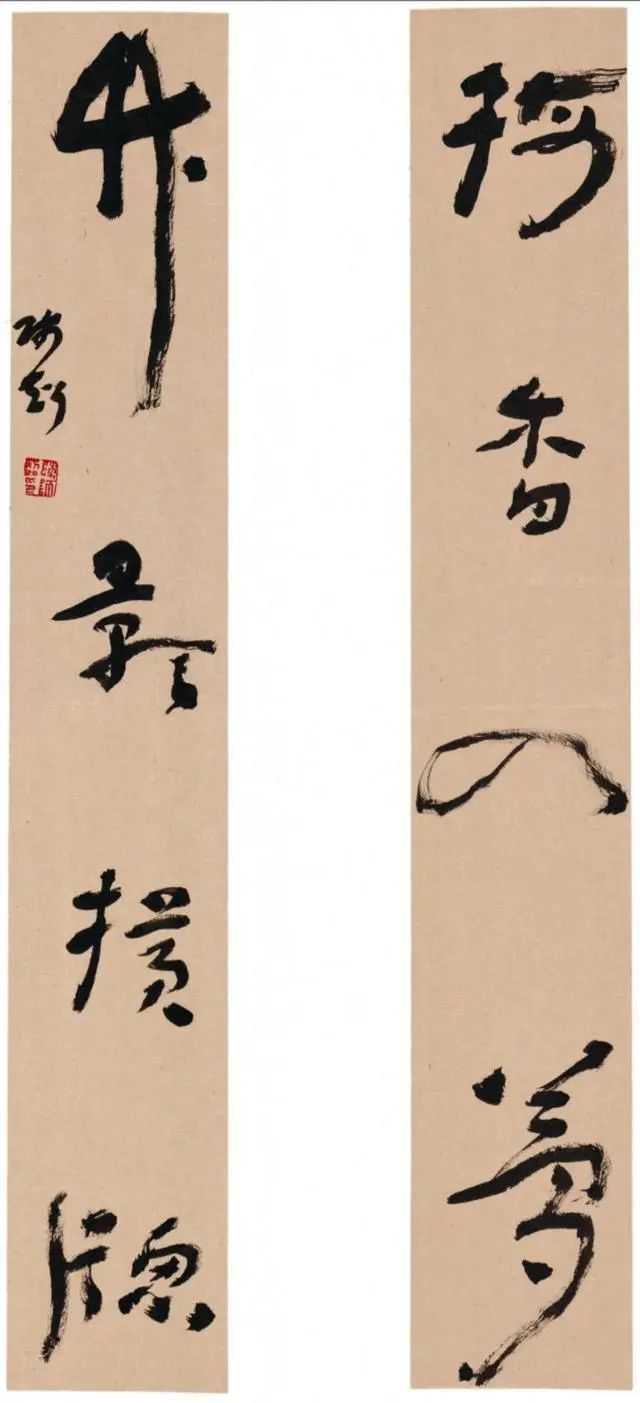 梅香入夢
竹影橫牕